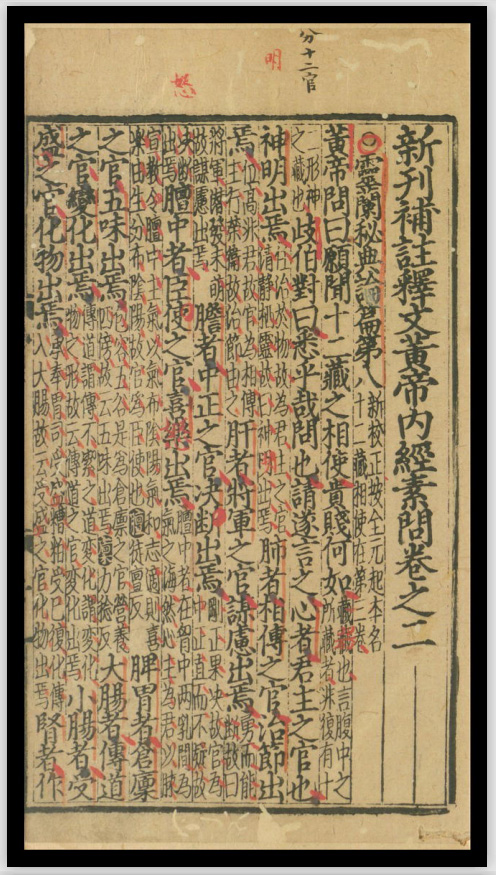 分十二官
明
怒
新刊補註釋文黃帝內經素問卷之二
○靈蘭秘典論篇第八新校正按全元起本名十二藏相使在第三卷
黃帝問曰願聞十二藏之相使貴賤何如藏藏也言腹中之所藏者非復有十
二形神之藏也歧伯對曰悉乎哉問也請遂言之心者君主之官也
神明出焉任治於物故為君主之官清靜栖靈故曰神明出焉肺者相傳之官治節出
焉位高非君故官為相傳主行榮衛故治節由之肝者將軍之官謀慮出焉勇而能斷故曰
將軍潛發未萌故謀慮出焉膽者中正之官決斷出焉剛正果決故官為中正直而不疑故
決斷出焉膻中者臣使之官喜樂出焉膻中者在胷中兩乳間為氣之海然心主為君以敷
宣教令膻中主氣以氣布陰陽氣和志適則喜樂由生分布陰陽故官為臣使也膻徒亶反脾胃者倉廩
之官五味出焉包容五穀是為倉廩之官營養四傍故云五味出焉廩力稔反大腸者傳道
之官變化出焉傳道謂傳不潔之道變化謂變化物之形故云傳道之官變化出焉小腸者受
盛之官化物出焉承奉胃司受盛糟粕受已復化傳入大腸故云受盛之官化物出焉腎者作